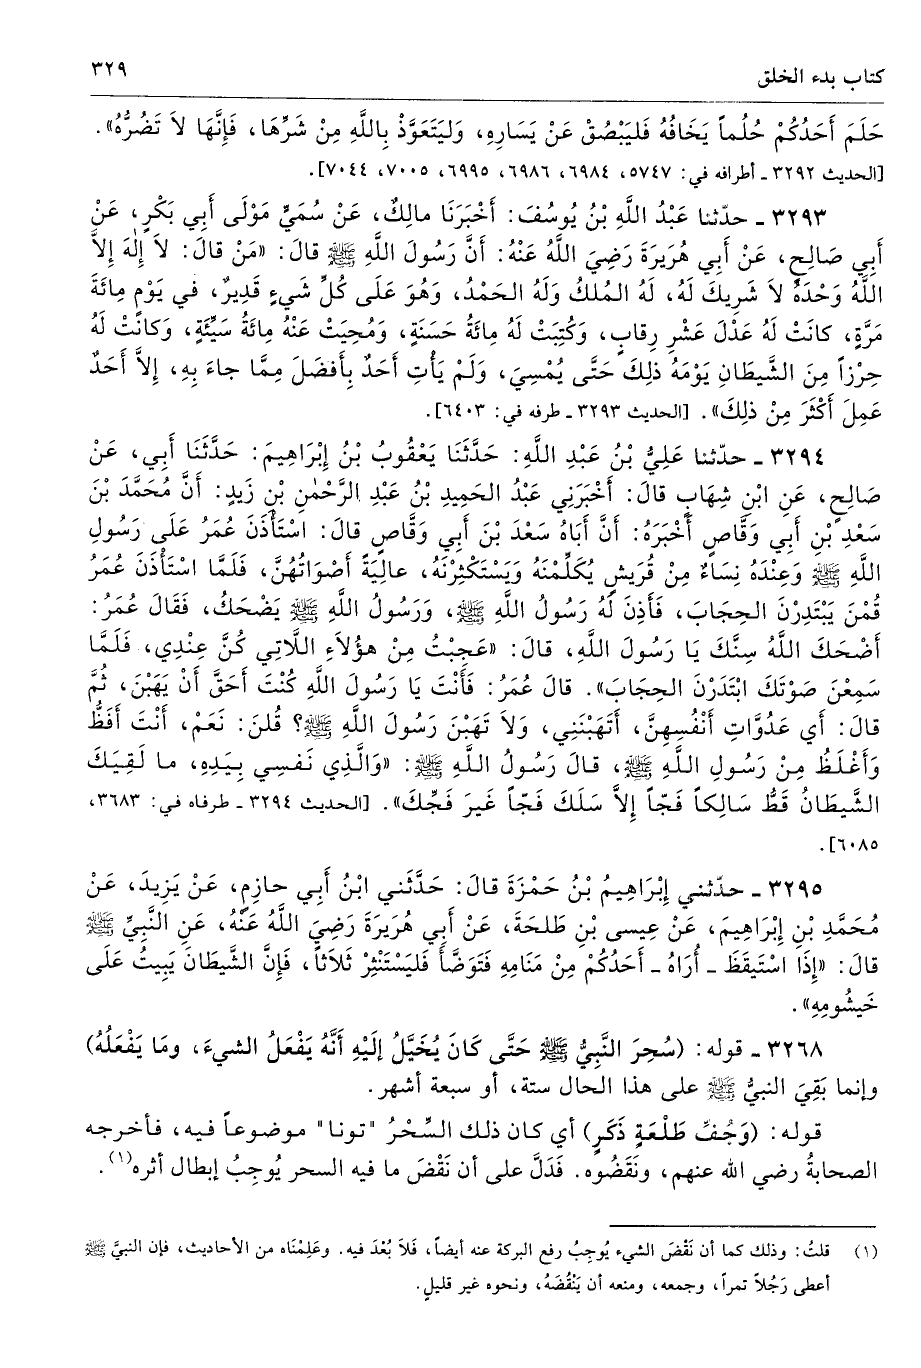 كتاب بدء الخلق ٣٢٩
حَلَمَ أَحَدُكُمْ حُلُماً يَخَافُهُ فَليَبْصُقْ عَنْ يَسَارِهِ، وَليَتَعَوَّذْ بِاللَّهِ مِنْ شَرِّهَا، فَإِنَّهَا لاَ تَضُرُّهُ».
[الحديث ٣٢٩٢ ـ أطرافه في: ٥٧٤٧، ٦٩٨٤، ٦٩٨٦، ٦٩٩٥، ٧٠٠٥، ٧٠٤٤].
٣٢٩٣ ـ حدّثنا عَبْدُ اللَّهِ بْنُ يُوسُفَ: أَخْبَرَنَا مالِكٌ، عَنْ سُمَيٍّ مَوْلَى أَبِي بَكْرٍ، عَنْ
أَبِي صَالِحٍ، عَنْ أَبِي هُرَيرَةَ رَضِيَ اللَّهُ عَنْهُ: أَنَّ رَسُولَ اللَّهِ ﷺ قالَ: «مَنْ قالَ: لاَ إِلٰهَ إِلاَّ
اللَّهُ وَحْدَهُ لاَ شَرِيكَ لَهُ، لَهُ المُلكُ وَلَهُ الحَمْدُ، وَهُوَ عَلَى كُلِّ شَيءٍ قَدِيرٌ، في يَوْمٍ مِائَةَ
مَرَّةٍ، كانَتْ لَهُ عَدْلَ عَشْرِ رِقابٍ، وَكُتِبَتْ لَهُ مِائَةُ حَسَنَةٍ، وَمُحِيَتْ عَنْهُ مِائَةُ سَيِّئَةٍ، وَكانَتْ لَهُ
حِرْزاً مِنَ الشَّيطَانِ يَوْمَهُ ذلِكَ حَتَّى يُمْسِيَ، وَلَمْ يَأْتِ أَحَدٌ بِأَفضَلَ مِمَّا جاءَ بِهِ، إِلاَّ أَحَدٌ
عَمِلَ أَكْثَرَ مِنْ ذلِكَ». [الحديث ٣٢٩٣ ـ طرفه في: ٦٤٠٣].
٣٢٩٤ ـ حدّثنا عَلِيُّ بْنُ عَبْدِ اللَّهِ: حَدَّثَنَا يَعْقُوبُ بْنُ إِبْرَاهِيمَ: حَدَّثَنَا أَبِي، عَنْ
صَالِحٍ، عَنِ ابْنِ شِهَابٍ قالَ: أَخْبَرَنِي عَبْدُ الحَمِيدِ بْنُ عَبْدِ الرَّحْمٰنِ بْنِ زَيدٍ: أَنَّ مُحَمَّدَ بْنَ
سَعْدِ بْنِ أَبِي وَقَّاصٍ أَخْبَرَهُ: أَنَّ أَبَاهُ سَعْدَ بْنَ أَبِي وَقَّاصٍ قالَ: اسْتَأْذَنَ عُمَرُ عَلَى رَسُولِ
اللَّهِ ﷺ وَعِنْدَهُ نِسَاءٌ مِنْ قُرَيشٍ يُكَلِّمْنَهُ وَيَسْتَكْثِرْنَهُ، عالِيَةً أَصْوَاتُهُنَّ، فَلَمَّا اسْتَأْذَنَ عُمَرُ
قُمْنَ يَبْتَدِرْنَ الحِجَابَ، فَأَذِنَ لَهُ رَسُولُ اللَّهِ ﷺ، وَرَسُولُ اللَّهِ ﷺ يَضْحَكُ، فَقَالَ عُمَرُ:
أَضْحَكَ اللَّهُ سِنَّكَ يَا رَسُولَ اللَّهِ، قالَ: «عَجِبْتُ مِنْ هؤُلاَءِ اللَّاتِي كُنَّ عِنْدِي، فَلَمَّا
سَمِعْنَ صَوْتَكَ ابْتَدَرْنَ الحِجَابَ». قالَ عُمَرُ: فَأَنْتَ يَا رَسُولَ اللَّهِ كُنْتَ أَحَقَّ أَنْ يَهَبْنَ، ثُمَّ
قالَ: أَي عَدُوَّاتِ أَنْفُسِهِنَّ، أَتَهَبْنَنِي، وَلاَ تَهَبْنَ رَسُولَ اللَّهِ ﷺ؟ قُلنَ: نَعَمْ، أَنْتَ أَفَظُّ
وَأَغْلَظُ مِنْ رَسُولِ اللَّهِ ﷺ، قالَ رَسُولُ اللَّهِ ﷺ: «وَالَّذِي نَفسِي بِيَدِهِ، ما لَقِيَكَ
الشَّيطَانُ قَطُّ سَالِكاً فَجّاً إِلاَّ سَلَكَ فَجّاً غَيرَ فَجِّكَ». [الحديث ٣٢٩٤ ـ طرفاه في: ٣٦٨٣،
٦٠٨٥].
٣٢٩٥ ـ حدّثني إِبْرَاهِيمُ بْنُ حَمْزَةَ قالَ: حَدَّثَنِي ابْنُ أَبِي حازِمٍ، عَنْ يَزِيدَ، عَنْ
مُحَمَّدِ بْنِ إِبْرَاهِيمَ، عَنْ عِيسى بْنِ طَلحَةَ، عَنْ أَبِي هُرَيرَةَ رَضِيَ اللَّهُ عَنْهُ، عَنِ النَّبِيِّ ﷺ
قالَ: «إِذَا اسْتَيقَظَ ـ أُرَاهُ ـ أَحَدُكُمْ مِنْ مَنَامِهِ فَتَوَضَّأَ فَليَسْتَنْثِرْ ثَلاَثاً، فَإِنَّ الشَّيطَانَ يَبِيتُ عَلَى
خَيشُومِهِ».
٣٢٦٨ ـ قوله: (سُحِرَ النَّبِيُّ ﷺ حَتَّى كَانَ يُخَيَّلُ إلَيْهِ أنَّهُ يَفْعَلُ الشيءَ، ومَا يَفْعَلُهُ)
وإنما بَقِيَ النبيُّ ﷺ على هذا الحال ستة، أو سبعة أشهر.
قوله: (وَجُفِّ طَلْعَةٍ ذَكَرٍ) أي كان ذلك السِّحْرُ "تونا" موضوعاً فيه، فأخرجه
الصحابةُ رضي الله عنهم، ونَقَضُوه. فَدَلَّ على أن نَقْضَ ما فيه السحر يُوجِبُ إبطال أثره(١).
(١) قلتُ: وذلك كما أن نَقْضَ الشيء يُوجِبُ رفع البركة عنه أيضاً، فَلاَ بُعْدَ فيه. وعَلِمْنَاه من الأحاديث، فإن النبيَّ ﷺ
أعطى رَجُلاً تمراً، وجمعه، ومنعه أن يَنْقُضَهُ، ونحوه غير قليلٍ.